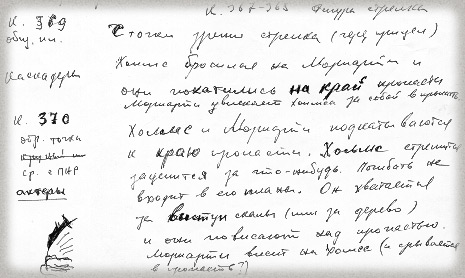 К. 367-368 Фигура стрелка
К. 369
общ. пл.
С точки зрения стрелка (через прицел)
Каскадеры
Холмс бросился на Мориарти и
они покатились на край пропасти
Мориарти увлекает Холмса за собой в пропасть.
К. 370
обр. точка
ср. с ПНР
актеры
Холмс и Мориарти подкатываются
к краю пропасти. Холмс стремится
зацепится за что-нибудь. Погибать не
входит в его планы. Он хватается
за выступ скалы (или за дерево)
и они повисают над пропастью.
Мориарти висит на Холмсе (и срывается
в пропасть?)